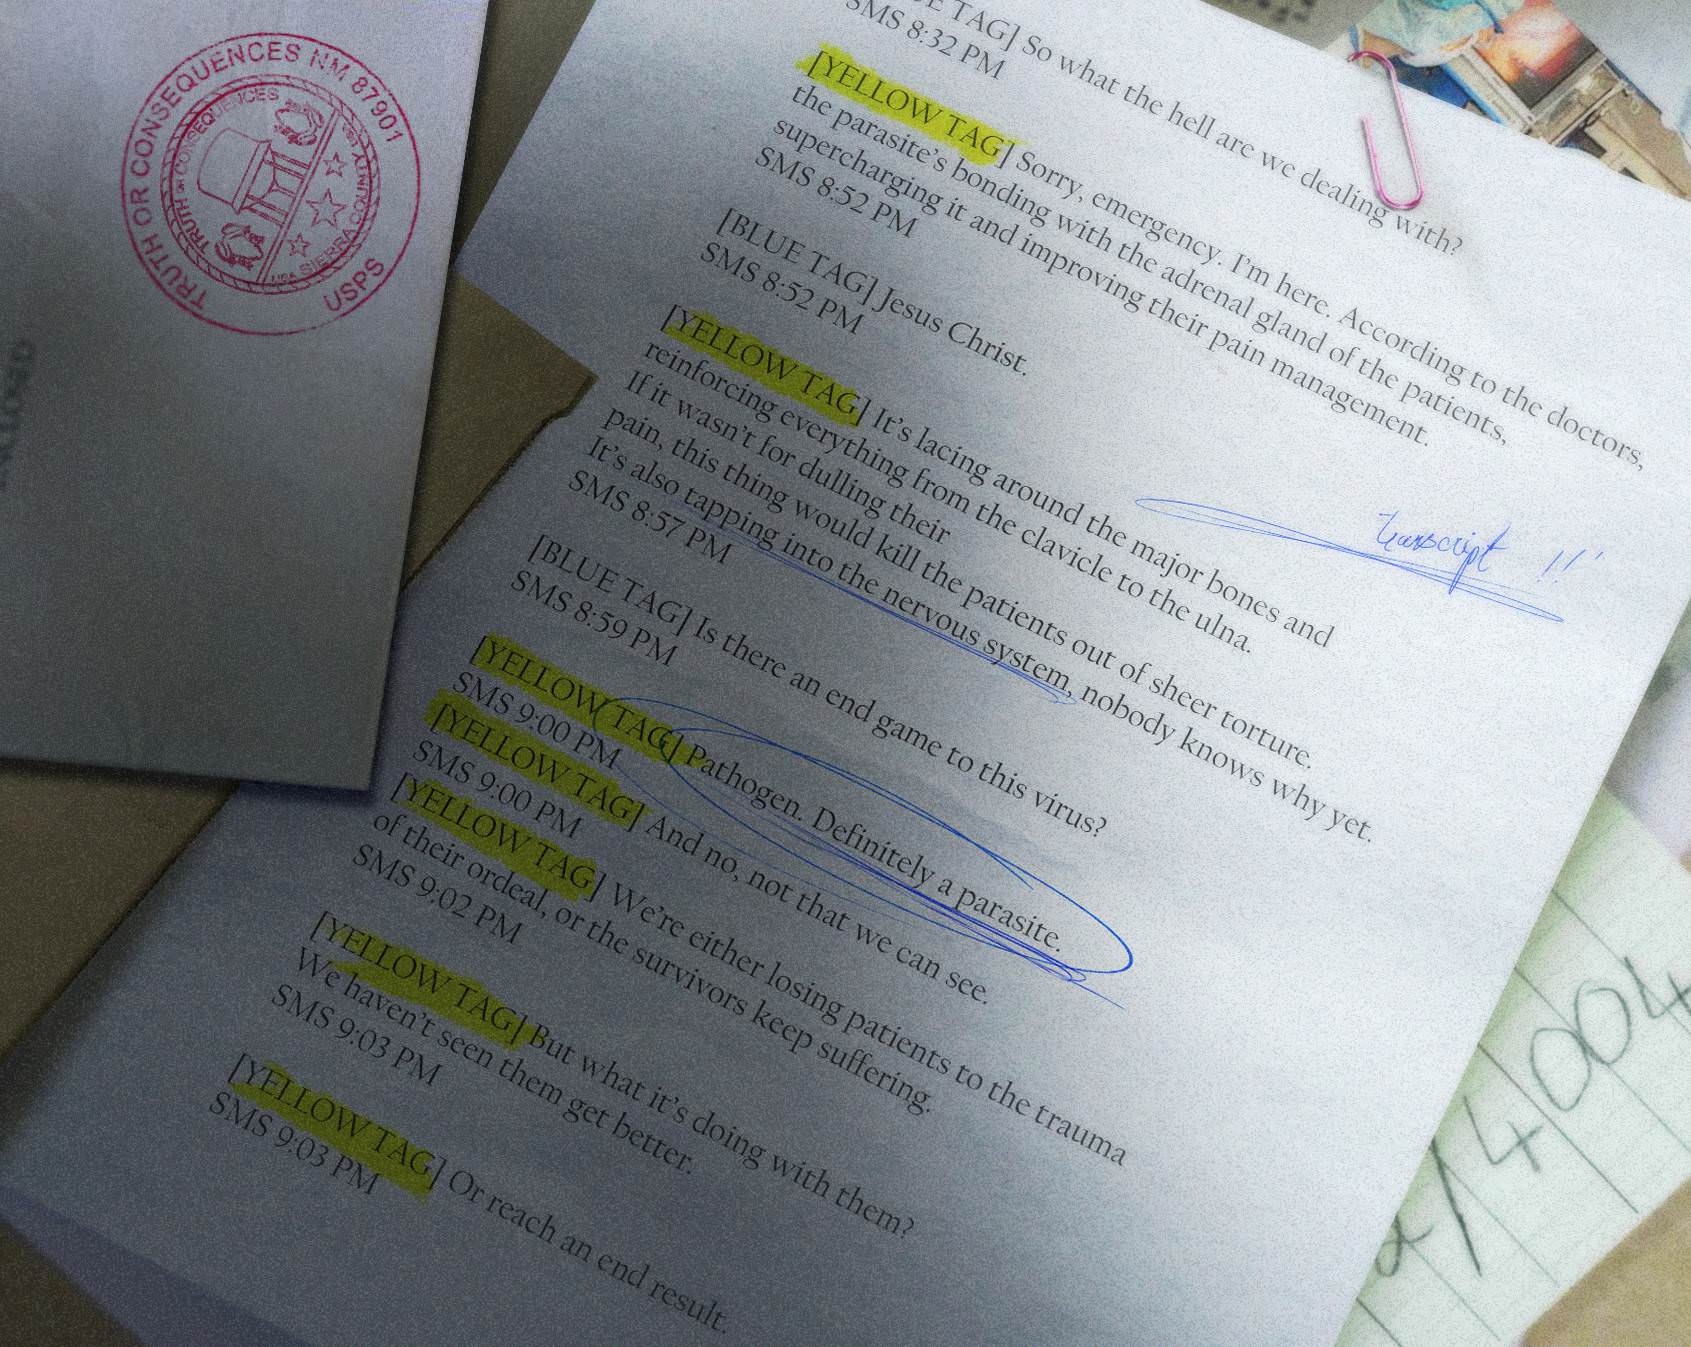 TRUTH OR CONSEQUENCES NM 87901
USPS
TRUTH OR CONSEQUENCES
USA SIERRA COUNTY
E TAG] So what the hell are we dealing with?
SMS 8:32 PM
[YELLOW TAG] Sorry, emergency. I'm here. According to the doctors,
the parasite's bonding with the adrenal gland of the patients,
supercharging it and improving their pain management.
SMS 8:52 PM
[BLUE TAG] Jesus Christ.
SMS 8:52 PM
[YELLOW TAG] It's lacing around the major bones and
reinforcing everything from the clavicle to the ulna.
If it wasn't for dulling their
pain, this thing would kill the patients out of sheer torture.
It's also tapping into the nervous system, nobody knows why yet.
SMS 8:57 PM
Transcript !!
[BLUE TAG] Is there an end game to this virus?
SMS 8:59 PM
[YELLOW TAG] Pathogen. Definitely a parasite.
SMS 9:00 PM
[YELLOW TAG] And no, not that we can see.
SMS 9:00 PM
[YELLOW TAG] We're either losing patients to the trauma
of their ordeal, or the survivors keep suffering.
SMS 9:02 PM
[YELLOW TAG] But what it's doing with them?
We haven't seen them get better.
SMS 9:03 PM
[YELLOW TAG] Or reach an end result.
SMS 9:03 PM
/4004